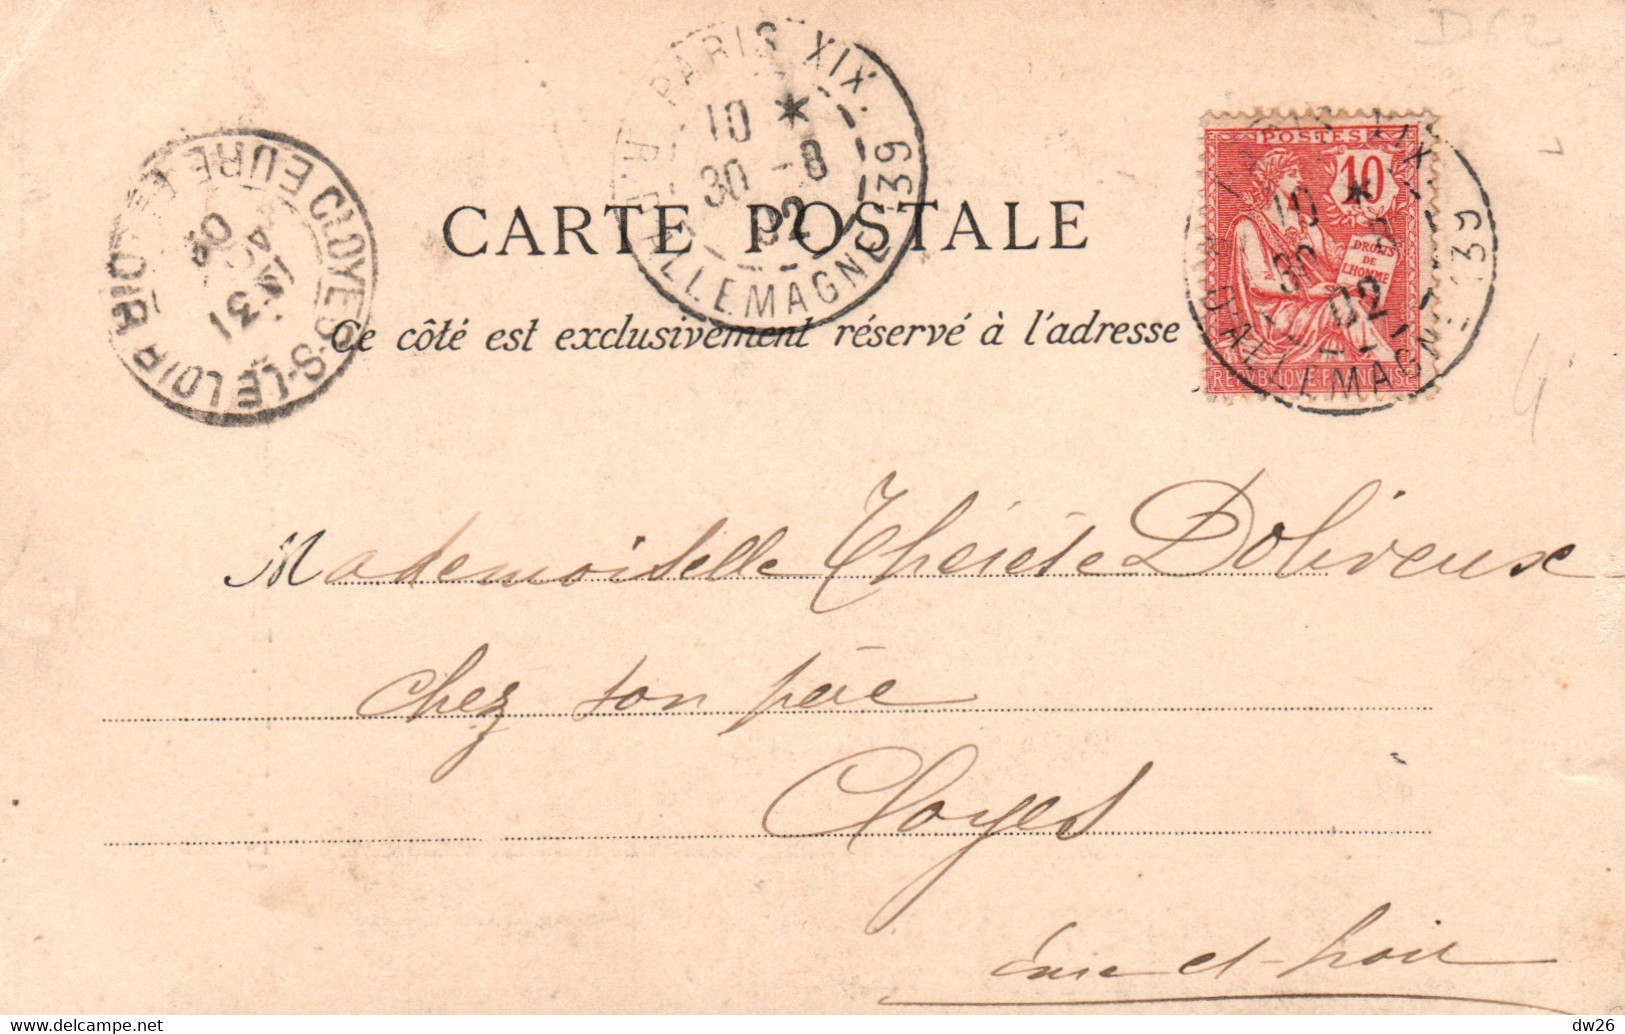 D62
PARIS XIX
R. D'ALLEMAGNE 139
10 *
30 - 8
02
CLOYES-S-LE LOIR
EURE ET LOIR
31
02
POSTES
10
DROITS
DE
L'HOMME
REPVBLIQVE FRANÇAISE
R. D'ALLEMAGNE 139
10 *
30 8
02
CARTE POSTALE
Ce côté est exclusivement réservé à l'adresse
Mademoiselle Thérèse Doliveux
chez son père
Cloyes
Eure et Loir
dw26